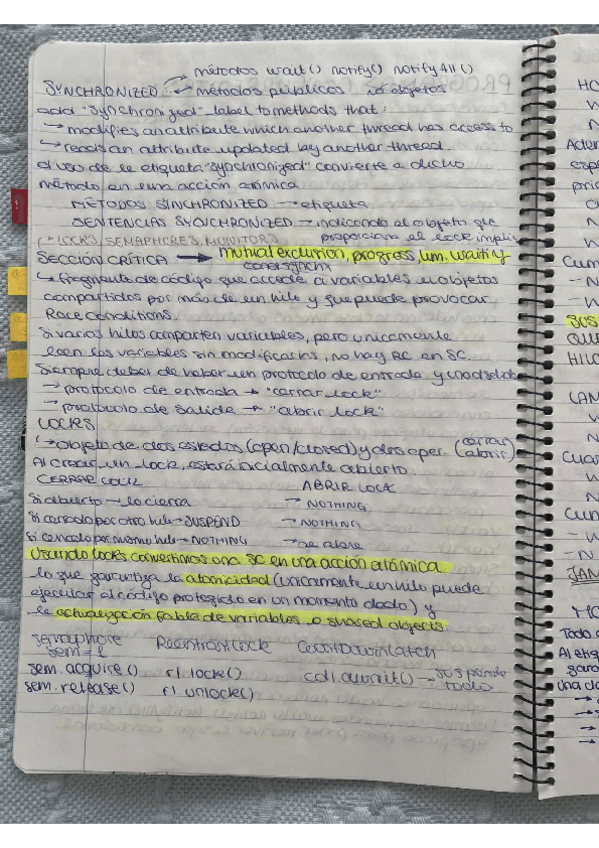 métodos wait() notify() notifyAll()
SYNCHRONIZED métodos públicos objetos
add "synchronized" label to methods that:
→ modifies an attribute which another thread has access to
→ reads an attribute updated by another thread
el uso de la etiqueta "synchronized" convierte a dicho
método en una acción atómica
MÉTODOS SINCHRONIZED → etiqueta
SENTENCIAS SYNCHRONIZED → indicando el objeto que
proporciona el lock implí
LOCKS, SEMAPHORES, MONITORS
SECCIÓN CRÍTICA → mutual exclusion, progress, lim. waiting
→ fragmento de código que accede a variables u objetos
compartidos por más de un hilo y que puede provocar
Race conditions.
Si varios hilos comparten variables, pero únicamente
leen las variables sin modificarlas, no hay RC en SC.
Siempre debe de haber un protocolo de entrada y uno de salida
→ protocolo de entrada → "cerrar lock"
→ protocolo de salida → "abrir lock"
LOCKS
→ objeto de dos estados (open/closed) y dos oper. (cerrar/abrir)
Al crear un lock, estará inicialmente abierto.
CERRAR LOCK ABRIR LOCK
Si abierto → lo cierra → NOTHING
Si cerrado por otro hilo → SUSPEND → NOTHING
Si cerrado por mismo hilo → NOTHING → se abre
Usando locks convertimos una SC en una acción atómica
lo que garantiza la atomicidad (únicamente un hilo puede
ejecutar el código protegido en un momento dado) y
la actualización fiable de variables o shared objects.
Semaphore ReentrantLock CountDownLatch
sem = 1
sem.acquire() rl.lock() cdl.await() → suspende
todo
sem.release() rl.unlock()
HC
Ader
espe
prio
Cum
SUS
QUE
HILO
LAN
Cuar
Cum
JAN
Todo
Al etiq
gara
una cla